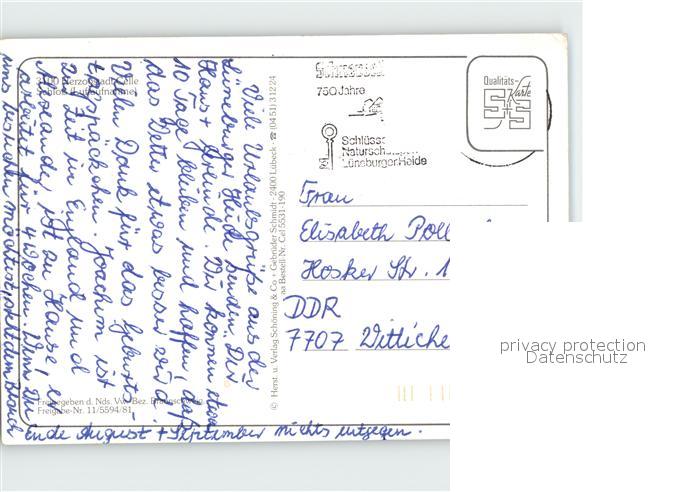 3100 Herzogstadt Celle
Schloß (Luftaufnahme)
Viele Urlaubsgrüße aus der
Lüneburger Heide senden Dir
Hans + Gerlinde. Wir können etwa
10 Tage bleiben und hoffen daß
das Wetter etwas besser wird.
Vielen Dank für das Geburts-
tagspäckchen. Joachim ist
z. Zeit in England und
ist zu Hause, er
arbeitet für 4 Wochen. Wenn Du
uns besuchen möchtest, steht dem
Ende August + September nichts entgegen.
Freigegeben d. Nds. Vw. Bez. Braunschweig
Freigabe-Nr. 11/5594/81
© Herst. u. Verlag Schöning & Co + Gebrüder Schmidt · 2400 Lübeck · ☎ (0451) 31224
Bestell-Nr. Cel 5531-190
Schneverdingen
750 Jahre
Schlüssel
Naturschutzpark
Lüneburger Heide
Qualitäts-
Karte
S+S
Frau
Elisabeth
Hosker Str. 1
DDR
7707
privacy protection
Datenschutz